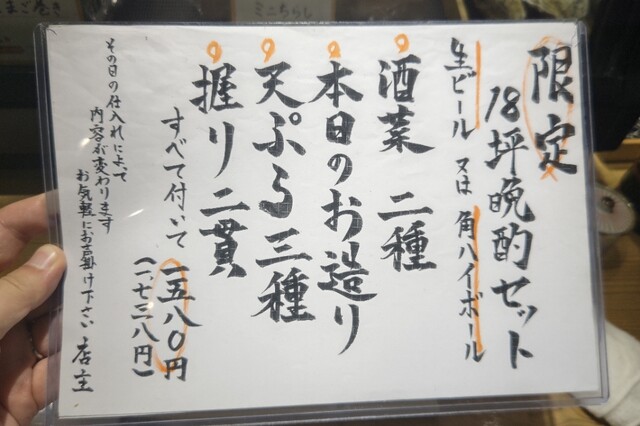 限定
18坪晩酌セット
生ビール 又は 角ハイボール
酒菜 二種
本日のお造り
天ぷら三種
握り二貫
すべて付いて
一五八〇円
（一、七三八円）
その日の仕入れによって
内容が変わります
お気軽にお声掛け下さい 店主
ミニちらし